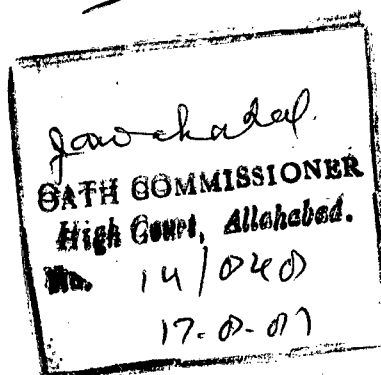 OATH COMMISSIONER
High Court, Allahabad.
No. 14/040
17-8-87